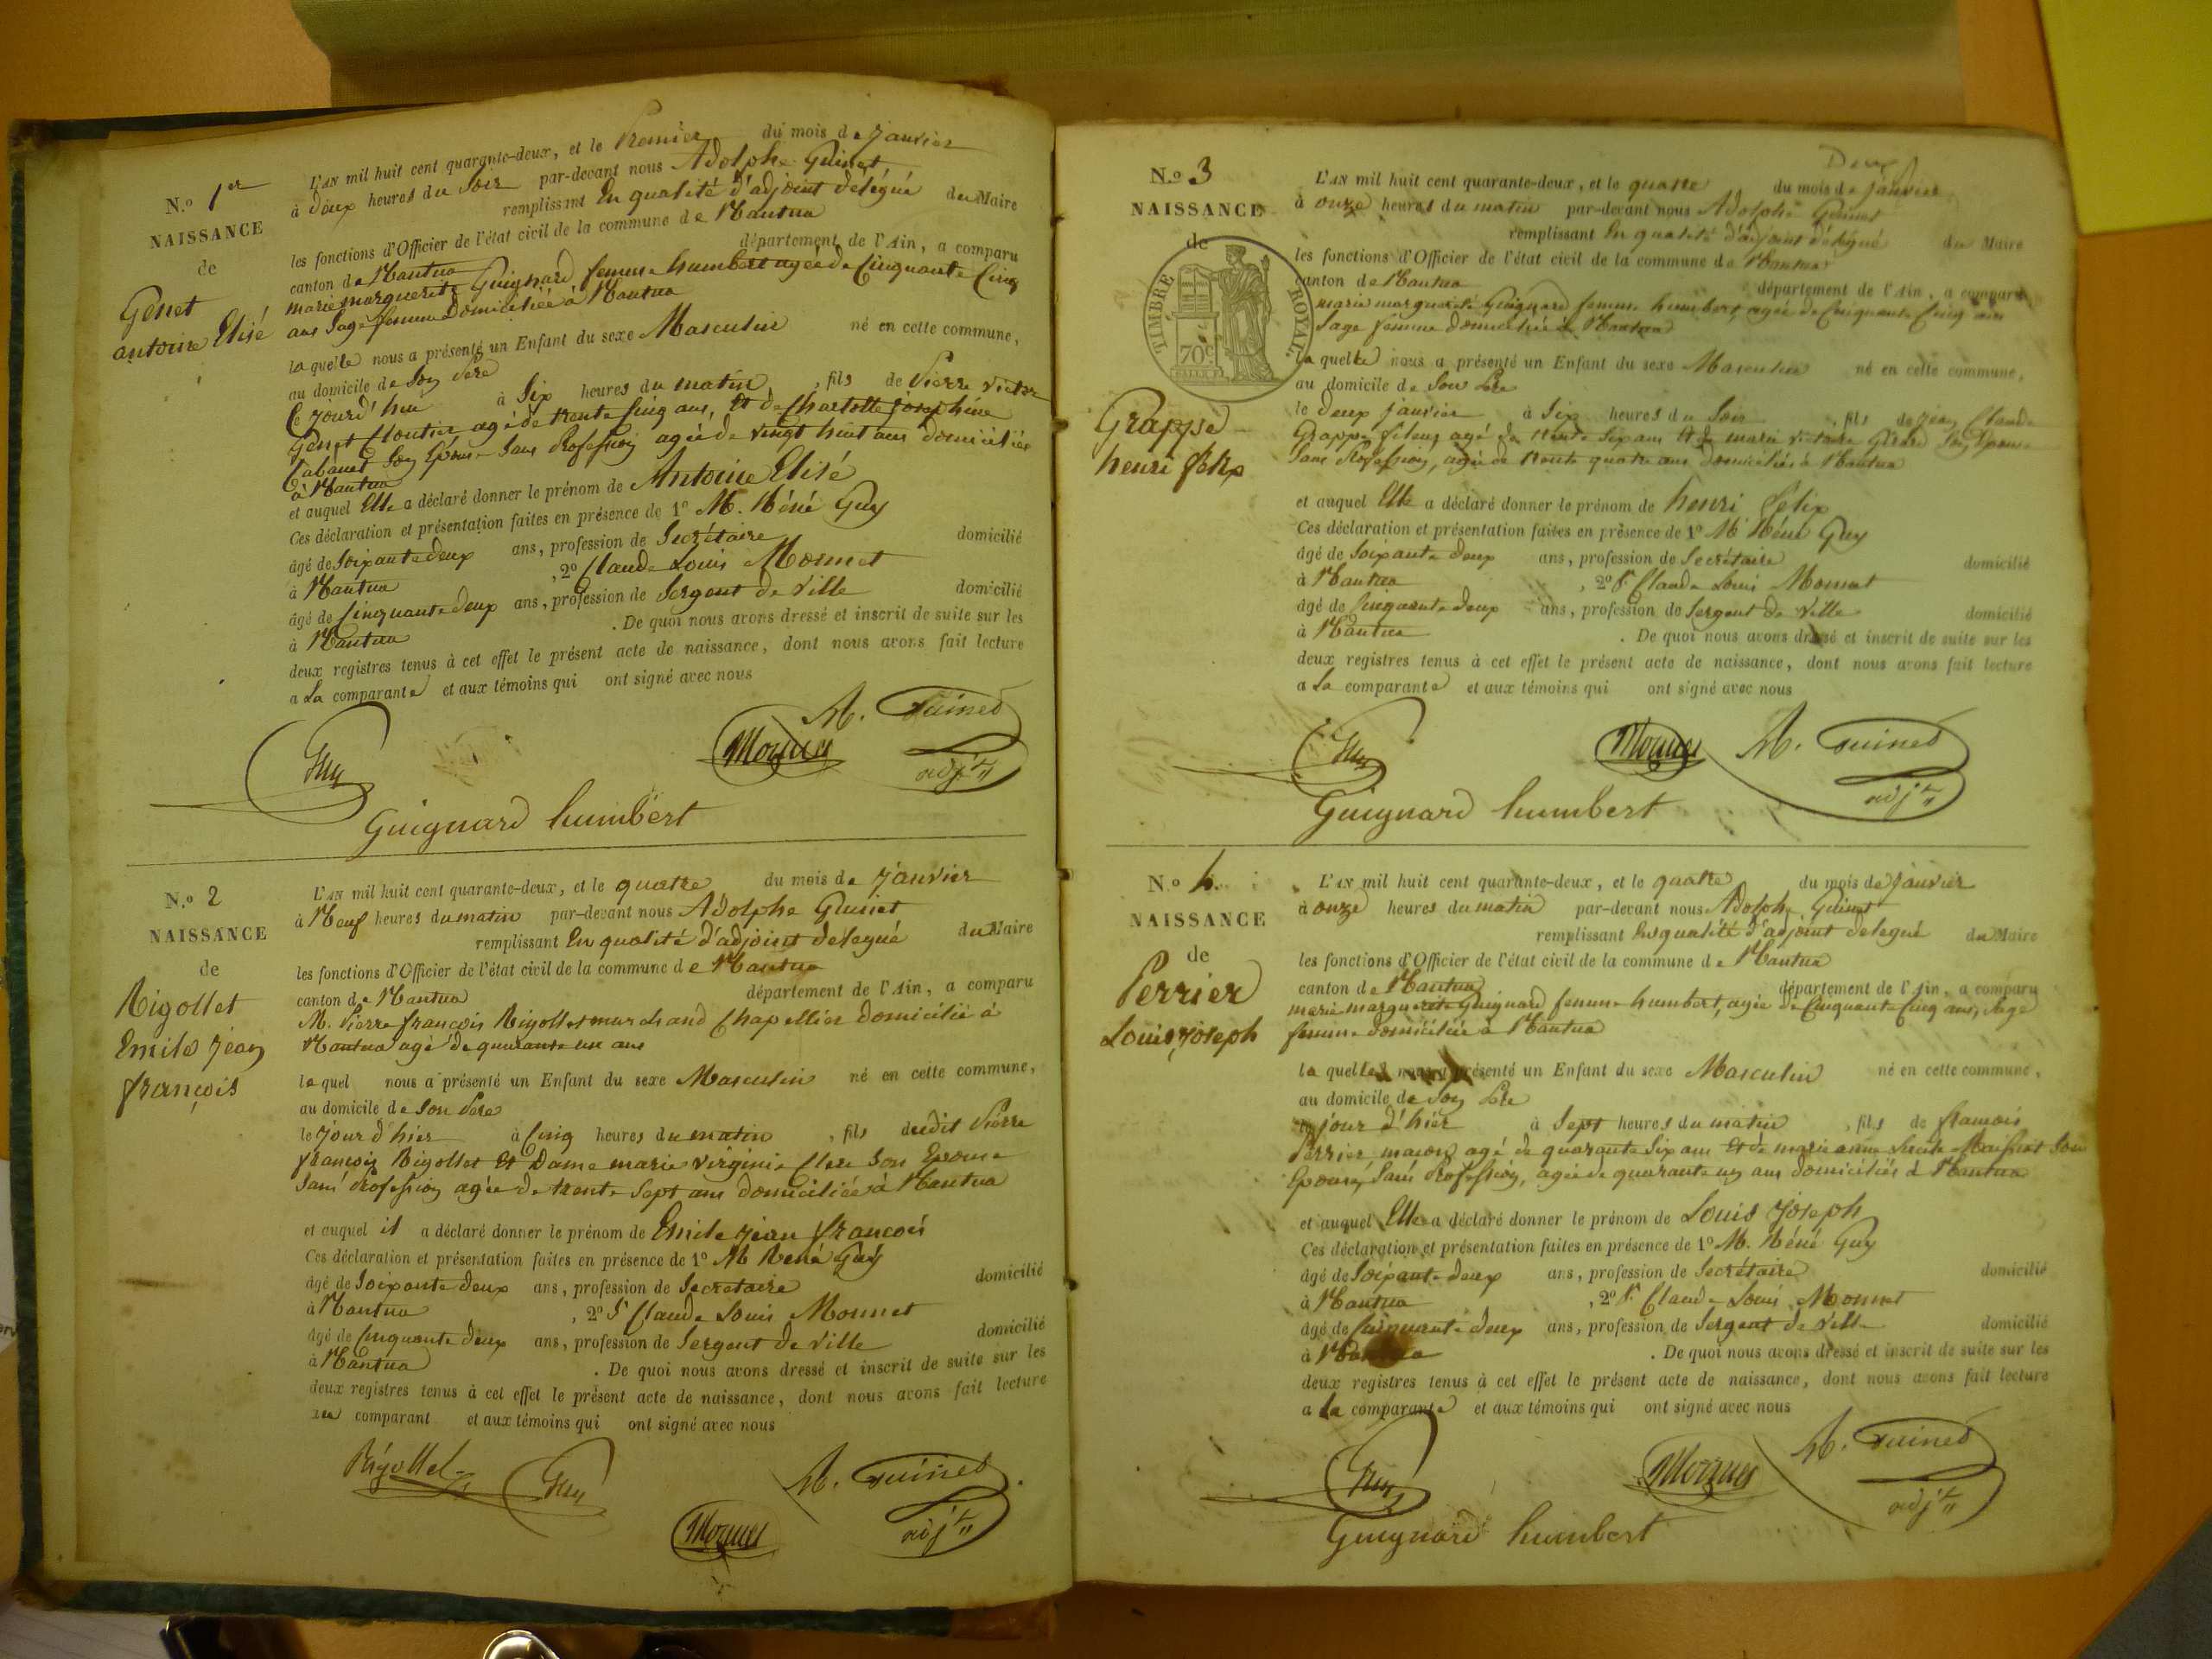 N.o 1er
NAISSANCE
de
Genet
antoine Elisé
L'AN mil huit cent quarante-deux, et le Premier du mois de janvier
à deux heures du Soir par-devant nous Adolphe Guinet
remplissant En qualité d'adjoint délégué du Maire
les fonctions d'Officier de l'état civil de la commune de Nantua
canton de Nantua département de l'Ain, a comparu
marie marguerite Guignard femme humbert agée de Cinquante Cinq
ans Sage femme Domiciliée à Nantua
laquelle nous a présenté un Enfant du sexe Masculin né en cette commune,
au domicile de Son Père
Ce jourd'hui à Six heures du matin, fils de Pierre victor
Genet Cloutier agé de trente Cinq ans, Et de Charlotte joséphine
Son Epouse Sans Profession agée de vingt huit ans domiciliés
à Nantua
et auquel Elle a déclaré donner le prénom de Antoine Elisé
Ces déclaration et présentation faites en présence de 1o M. Réné Guy
âgé de Soixante deux ans, profession de Secrétaire domicilié
à Nantua, 2o Claude Louis Monnet
âgé de Cinquante deux ans, profession de Sergent de ville domicilié
à Nantua. De quoi nous avons dressé et inscrit de suite sur les
deux registres tenus à cet effet le présent acte de naissance, dont nous avons fait lecture
a La comparante et aux témoins qui ont signé avec nous
Guy Monnet A. Guinet
adjt
Guignard humbert
N.o 2
NAISSANCE
de
Rigollet
Emile jean
françois
L'AN mil huit cent quarante-deux, et le quatre du mois de janvier
à Neuf heures du matin par-devant nous Adolphe Guinet
remplissant En qualité d'adjoint délégué du Maire
les fonctions d'Officier de l'état civil de la commune de Nantua
canton de Nantua département de l'Ain, a comparu
M. Pierre françois Rigollet marchand Chapellier domicilié à
Nantua agé de quarante un ans
lequel nous a présenté un Enfant du sexe Masculin né en cette commune,
au domicile de Son Père
le jour d'hier à Cinq heures du matin, fils dudit Pierre
françois Rigollet Et Dame marie virginie Clerc Son Epouse
Sans Profession agée de trente Sept ans domiciliée à Nantua
et auquel il a déclaré donner le prénom de Emile jean françois
Ces déclaration et présentation faites en présence de 1o M René Guy
âgé de Soixante deux ans, profession de Secretaire domicilié
à Nantua, 2o Sr Claude Louis Monnet
âgé de Cinquante deux ans, profession de Sergent de ville domicilié
à Nantua. De quoi nous avons dressé et inscrit de suite sur les
deux registres tenus à cet effet le présent acte de naissance, dont nous avons fait lecture
au comparant et aux témoins qui ont signé avec nous
Rigollet Guy A. Guinet
Monnet adjt
Deux
N.o 3
NAISSANCE
de
TIMBRE ROYAL
70c
Grappe
henri félix
L'AN mil huit cent quarante-deux, et le quatre du mois de janvier
à onze heures du matin par-devant nous Adolphe Guinet
remplissant En qualité d'adjoint délégué du Maire
les fonctions d'Officier de l'état civil de la commune de Nantua
canton de Nantua département de l'Ain, a comparu
marie marguerite Guignard femme humbert, agée de Cinquante Cinq ans
Sage femme domiciliée à Nantua
laquelle nous a présenté un Enfant du sexe Masculin né en cette commune,
au domicile de Son Père
le deux janvier à Six heures du Soir, fils de jean Claude
Grappe fileur agé de trente Six ans Et de marie victoire Girard Son Epouse
Sans Profession, agée de trente quatre ans domiciliés à Nantua
et auquel Elle a déclaré donner le prénom de henri félix
Ces déclaration et présentation faites en présence de 1o M Réné Guy
âgé de Soixante deux ans, profession de Secrétaire domicilié
à Nantua, 2o Sr Claude Louis Monnet
âgé de Cinquante deux ans, profession de Sergent de ville domicilié
à Nantua. De quoi nous avons dressé et inscrit de suite sur les
deux registres tenus à cet effet le présent acte de naissance, dont nous avons fait lecture
a La comparante et aux témoins qui ont signé avec nous
Guy Monnet A. Guinet
adjt
Guignard humbert
N.o 4.
NAISSANCE
de
Perrier
Louis joseph
L'AN mil huit cent quarante-deux, et le quatre du mois de janvier
à onze heures du matin par-devant nous Adolphe Guinet
remplissant En qualité d'adjoint délegué du Maire
les fonctions d'Officier de l'état civil de la commune de Nantua
canton de Nantua département de l'Ain, a comparu
marie marguerite Guignard femme humbert, agée de Cinquante Cinq ans, Sage
femme domiciliée à Nantua
laquelle nous a présenté un Enfant du sexe Masculin né en cette commune,
au domicile de Son Père
le jour d'hier à Sept heures du matin, fils de françois
Perrier maçon agé de quarante Six ans Et de marie anne Son
Epouse, Sans Profession, agée de quarante un ans domiciliés à Nantua
et auquel Elle a déclaré donner le prénom de Louis joseph
Ces déclaration et présentation faites en présence de 1o M. Réné Guy
âgé de Soixante deux ans, profession de Secrétaire domicilié
à Nantua, 2o Sr Claude Louis Monnet
âgé de Cinquante deux ans, profession de Sergent de ville domicilié
à Nantua. De quoi nous avons dressé et inscrit de suite sur les
deux registres tenus à cet effet le présent acte de naissance, dont nous avons fait lecture
a La comparante et aux témoins qui ont signé avec nous
Guy Monnet A. Guinet
adjt
Guignard humbert